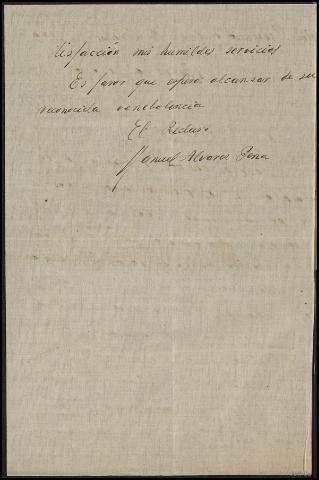 tisfacción mis humildes servicios
Es favor que espera alcanzar de su
reconocida venebolencia
El Recluso
Manuel Alvarez Pena